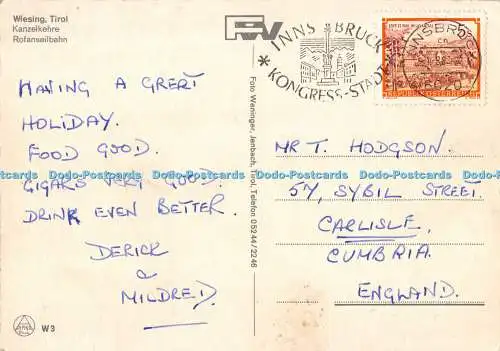 Wiesing, Tirol
Kanzelkehre
Rofanseilbahn
HAVING A GRERT
HOLIDAY.
FOOD GOOD.
CIGARS VERY GOOD.
DRINK EVEN BETTER.
DERICK
&
MILDRED.
W3
Foto Weninger, Jenbach, Tirol, Telefon 05244/2246
INNSBRUCK
KONGRESS-STADT
INNSBRUCK
REPUBLIK ÖSTERREICH
MR T. HODGSON.
57, SYBIL STREET.
CARLISLE.
CUMBRIA.
ENGLAND.
Dodo-Postcards Dodo-Postcards Dodo-Postcards Dodo-Postcards